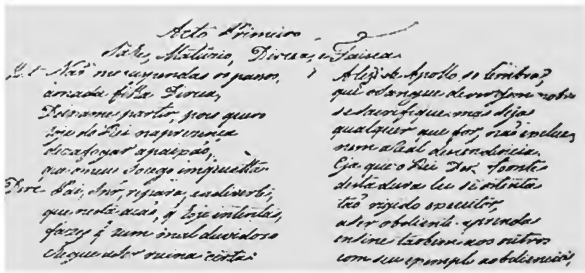 Acto Primeiro
Maturio, Dircea, e Faisca
Não me suspendas os passos,
amada filha Dircea,
Deixame partir, pois quero
hoje do Rei na prezença
dezafogar a paixão,
que o meu socego inquietta
Dirc Pai, Snr, repara, e adverti,
que nesta acaõ, q̃ hoje intentas,
fazes q̃ hum mal duvidozo
chegue a ser ruina certa:
A lei de Apollo, se lembra,
que o sangue de virgem nobre
se sacrifique, mas seja
qualquer que for, naõ inclue,
nem a Real descendencia.
Eja que o Rei
desta dura lei se ostenta
taõ rigido executor,
a ser obdiente aprenda
ensine tãobem aos outros
com seu exemplo a obdiencia,